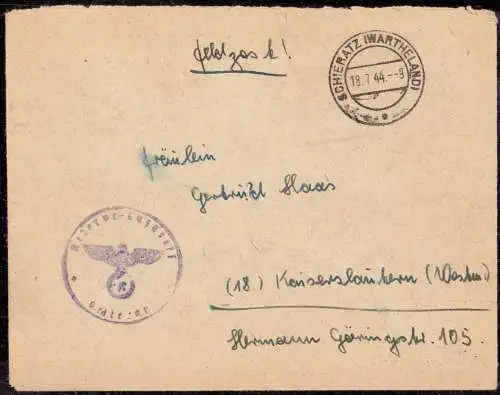 Feldpost!
SCHIERATZ (WARTHELAND)
18.7.44.--9
Fräulein
Gertrud Haas
Reserve-Lazarett
(18) Kaiserslautern (Westm.)
Hermann Göringstr. 105.